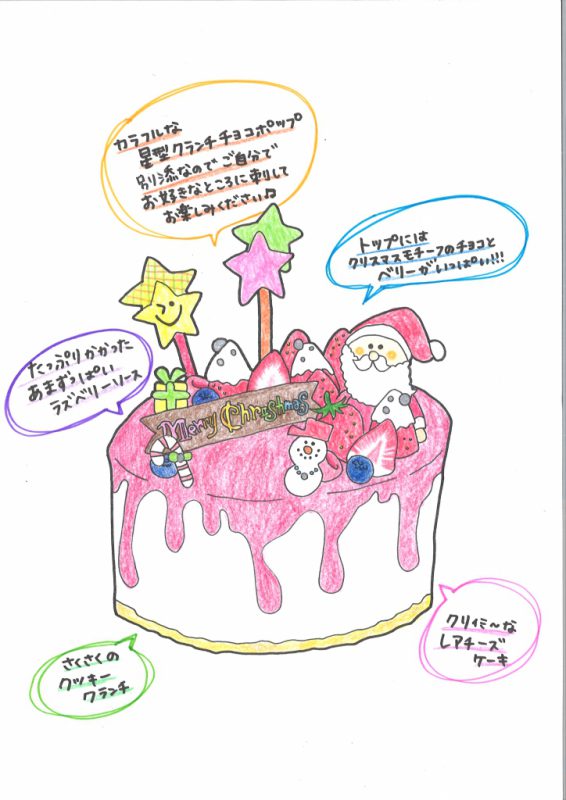 カラフルな
星型クランチチョコポップ
別添なのでご自分で
お好きなところに刺して
お楽しみください♪
トップには
クリスマスモチーフのチョコと
ベリーがいっぱい!!!
たっぷりかかった
あまずっぱい
ラズベリーソース
Merry Christmas
クリィミ〜な
レアチーズ
ケーキ
さくさくの
クッキー
クランチ